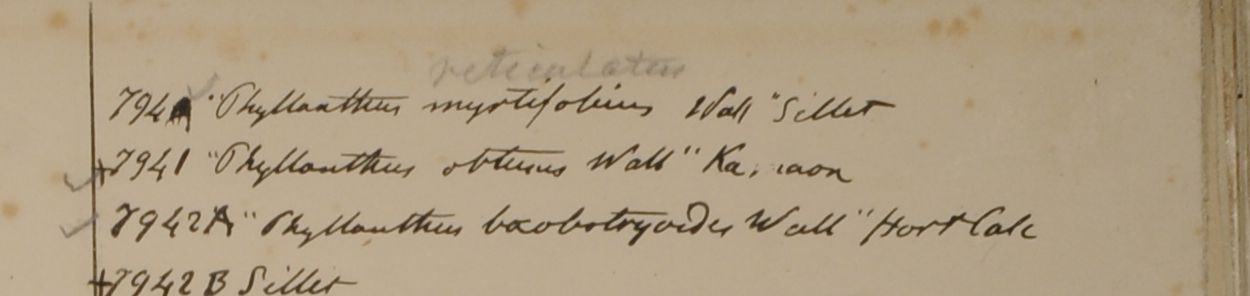 reticulatus
"Phyllanthus myrtifolius Wall" Sillet
7941 "Phyllanthus obtusus Wall"
7942A "Phyllanthus baeobotryoides Wall" Hort Calc
7942 B Sillet